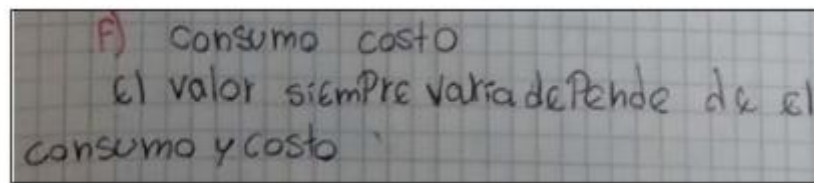 F) Consumo costo
El valor siempre varia depende de el
consumo y costo